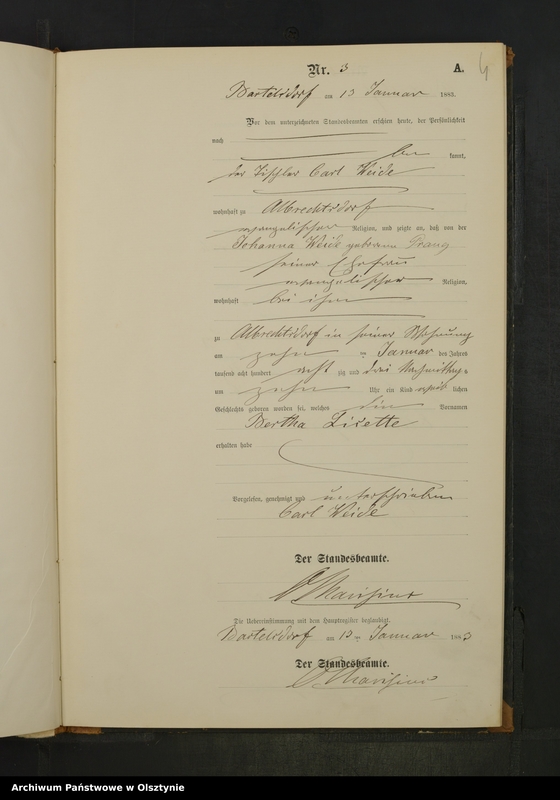 Nr. 3
A.
4
Bartelsdorf am 13 Januar 1883.
Vor dem unterzeichneten Standesbeamten erschien heute, der Persönlichkeit
nach
be kannt,
der Tischler Carl Weide
wohnhaft zu Albrechtsdorf
evangelischer Religion, und zeigte an, daß von der
Johanna Weide geborene Prang
seiner Ehefrau
evangelischer Religion,
wohnhaft bei ihm
zu Albrechtsdorf in seiner Wohnung
am zehn ten Januar des Jahres
tausend acht hundert acht zig und drei Nachmittags
um zehn Uhr ein Kind weib lichen
Geschlechts geboren worden sei, welches die Vornamen
Bertha Lisette
erhalten habe
Vorgelesen, genehmigt und unterschrieben
Carl Weide
Der Standesbeamte.
Die Uebereinstimmung mit dem Hauptregister beglaubigt.
Bartelsdorf am 13 ten Januar 1883
Der Standesbeamte.
Archiwum Państwowe w Olsztynie